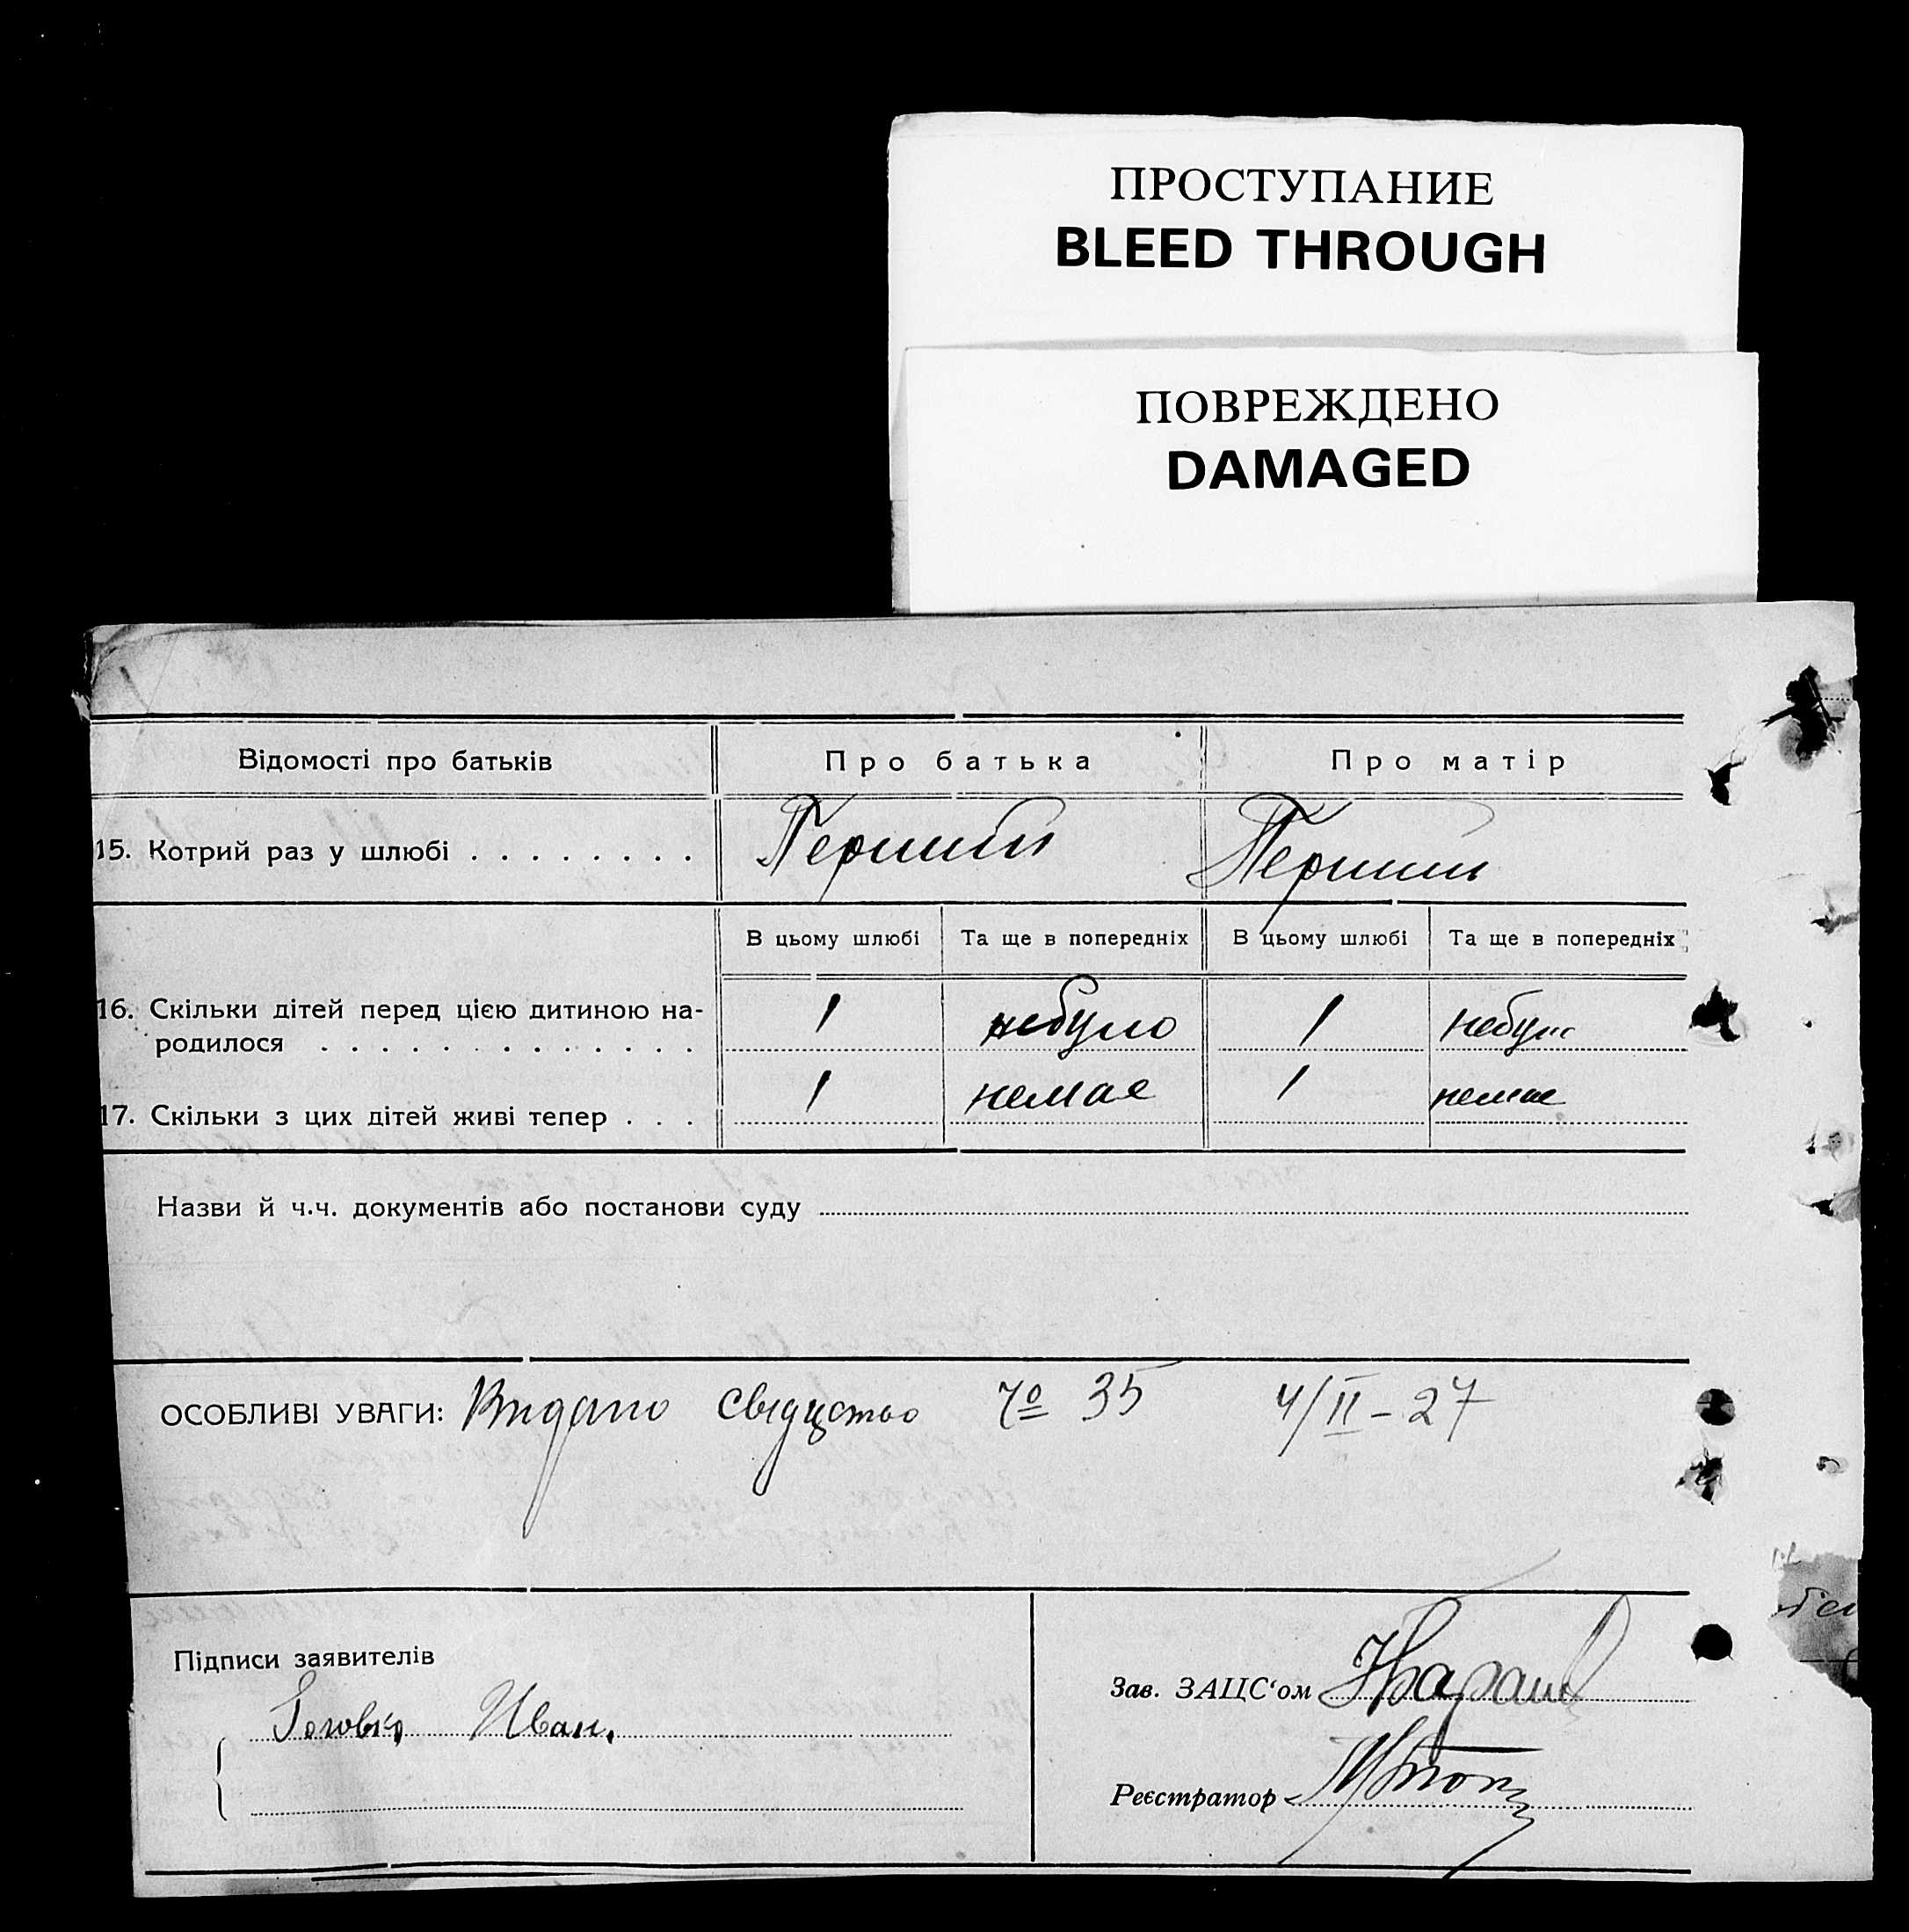 ПРОСТУПАНИЕ
BLEED THROUGH
ПОВРЕЖДЕНО
DAMAGED
Відомості про батьків Про батька Про матір
15. Котрий раз у шлюбі . . . . . . . . Перший Перший
В цьому шлюбі Та ще в попередніх В цьому шлюбі Та ще в попередніх
16. Скільки дітей перед цією дитиною на-
родилося . . . . . . . . . . . . . 1 небуло 1 небуло
17. Скільки з цих дітей живі тепер . . . 1 немає 1 немає
Назви й ч.ч. документів або постанови суду
ОСОБЛИВІ УВАГИ: Видано свідцтво 35 4/II – 27
Підписи заявителів
Зав. ЗАЦС‘ом
Иван.
Реєстратор